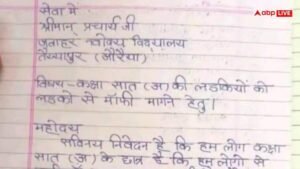 सेवा में
श्रीमान् प्रचार्य जी
जवाहर नवोदय विद्यालय
तैय्यापुर (औरैया)
विषय - कक्षा सात (अ) की लडकियों को
लडको से मॉफी मागने हेतु।
महोदय
सविनय निवेदन है कि हम लोग कक्षा
सात (अ) के छात्र हैं कि हम लोगों से
abp LIVE